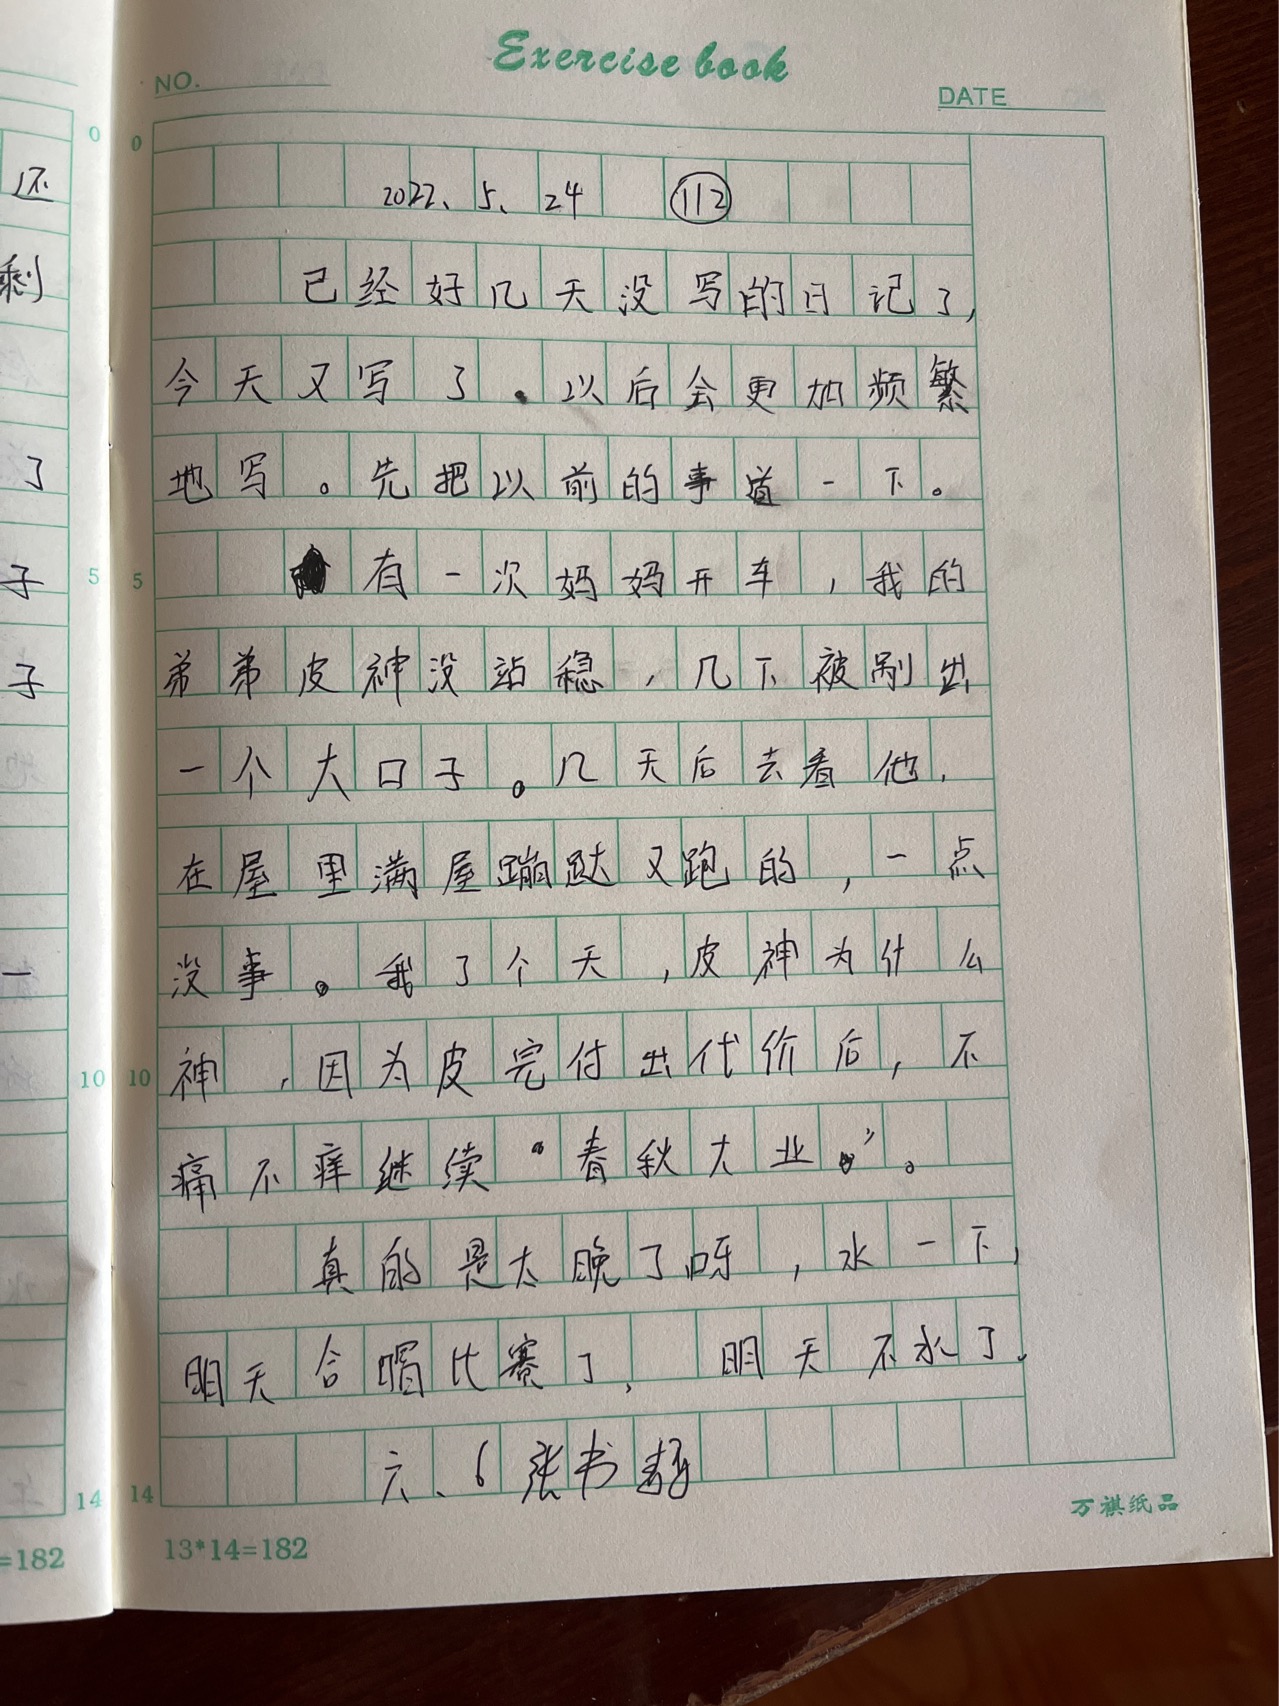 Exercise book
NO.
DATE
还
剩
了
子
子
一
0
5
10
14
=182
0
5
10
14
2022、5、24 112
已经好几天没写的日记了,
今天又写了.以后会更加频繁
地写。先把以前的事道一下。
有一次妈妈开车,我的
弟弟皮神没站稳,几下被剐出
一个大口子。几天后去看他,
在屋里满屋蹦跶又跑的,一点
没事。我了个天,皮神为什么
神,因为皮完付出代价后,不
痛不痒继续“春秋大业”。
真的是太晚了呀,水一下,
明天合唱比赛了, 明天不水了.
六、6 张书
万祺纸品
13*14=182